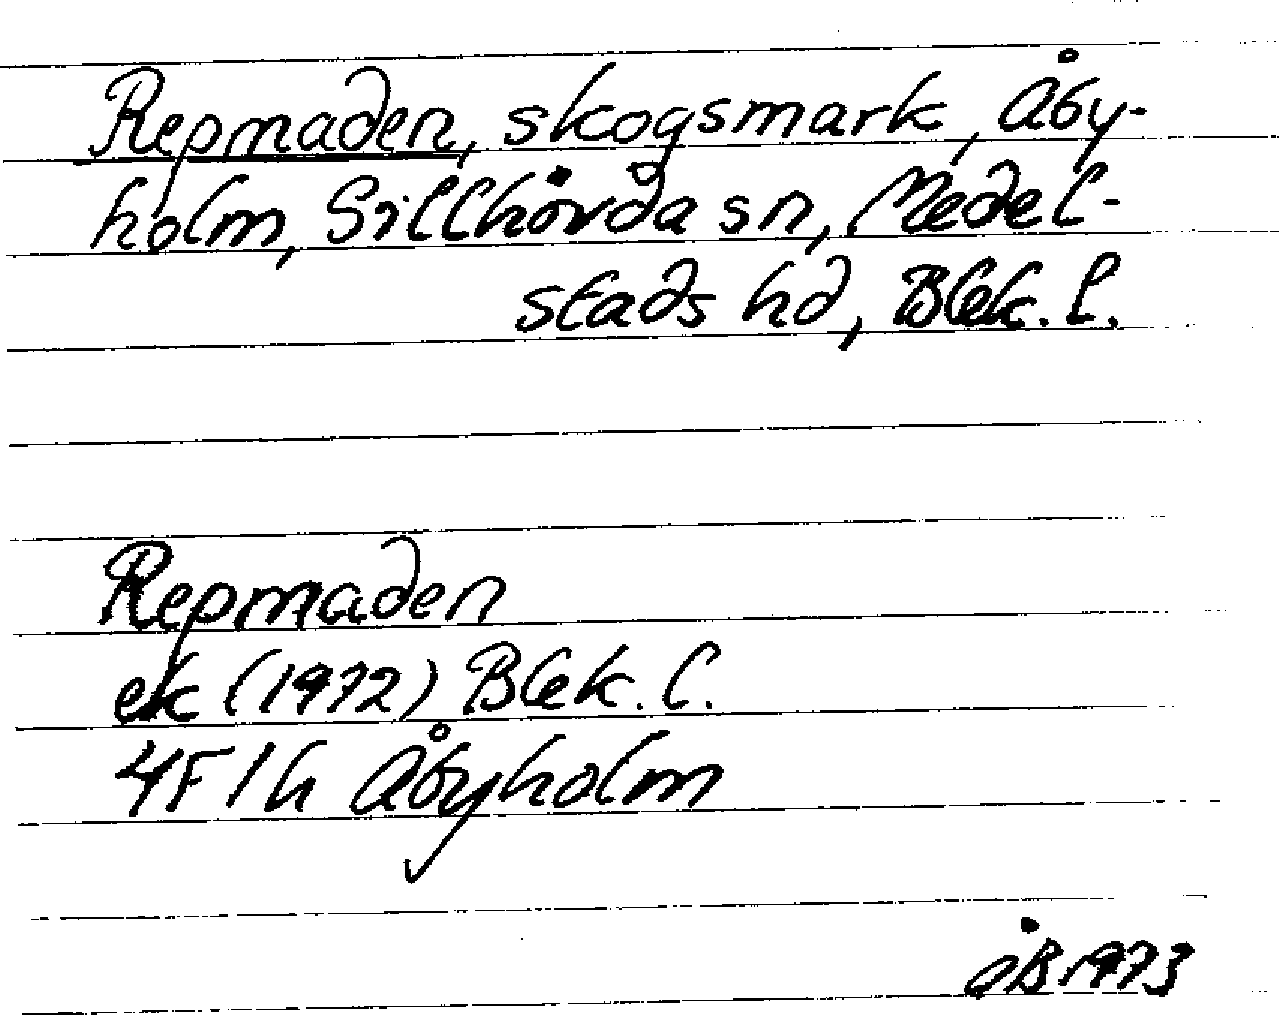 Repmaden, skogsmark, Åby-
holm, Sillhövda sn, Medel-
stads hd, Blek. l.
Repmaden
ek (1972) Blek. l.
4F 1h Åbyholm
ÅB 1973